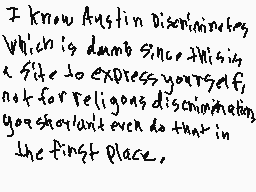 I know Austin Discriminates
which is dumb since this is
a site to express yourself,
not for religous discrimination,
you shou'dn't even do that in
the first place.